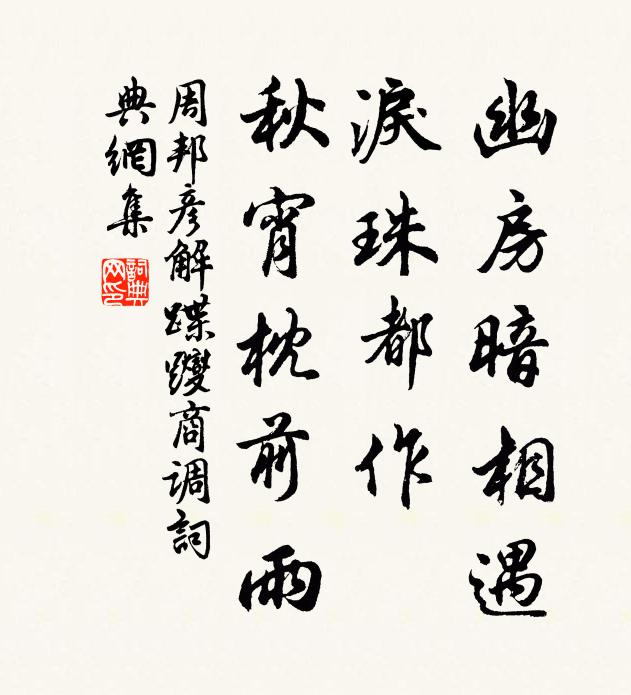 幽房暗相遇
淚珠都作
秋宵枕前雨
周邦彦解蹀躞商调詞
典網集
詞典網印